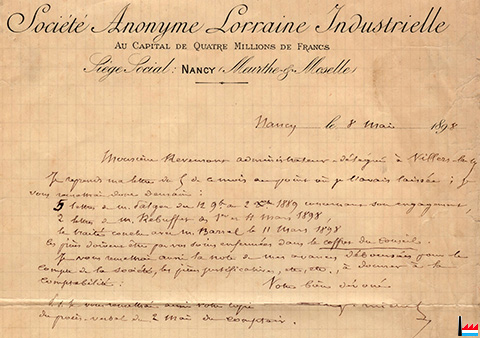 Société Anonyme Lorraine Industrielle
Au Capital de Quatre Millions de Francs
Siège Social: Nancy (Meurthe-&-Moselle)
Nancy le 8 Mai 1898
Monsieur administrateur-délégué à Villers-le-
Je reprends ma lettre de 5 de ce mois au point où je l'avais laissée: Je
vous remettrai donc demain:
5 lettres de M. du 12 9bre et 2 Xbre 1889 concernant son engagement,
2 lettres de M. Rebuffet des 1er et 11 Mars 1898,
le traité conclu avec M. Barral le 11 Mars 1898
les pièces doivent être par vos soins enfermées dans le coffre du Conseil.
Je vous remettrai aussi la note de mes avances déboursées pour le
compte de la société, les pièces justificatives, etc, etc., à donner à la
comptabilité:
Votre bien dévoué
vous remettrai aussi votre copie
du procès-verbal du 2 Mai du comptoir.